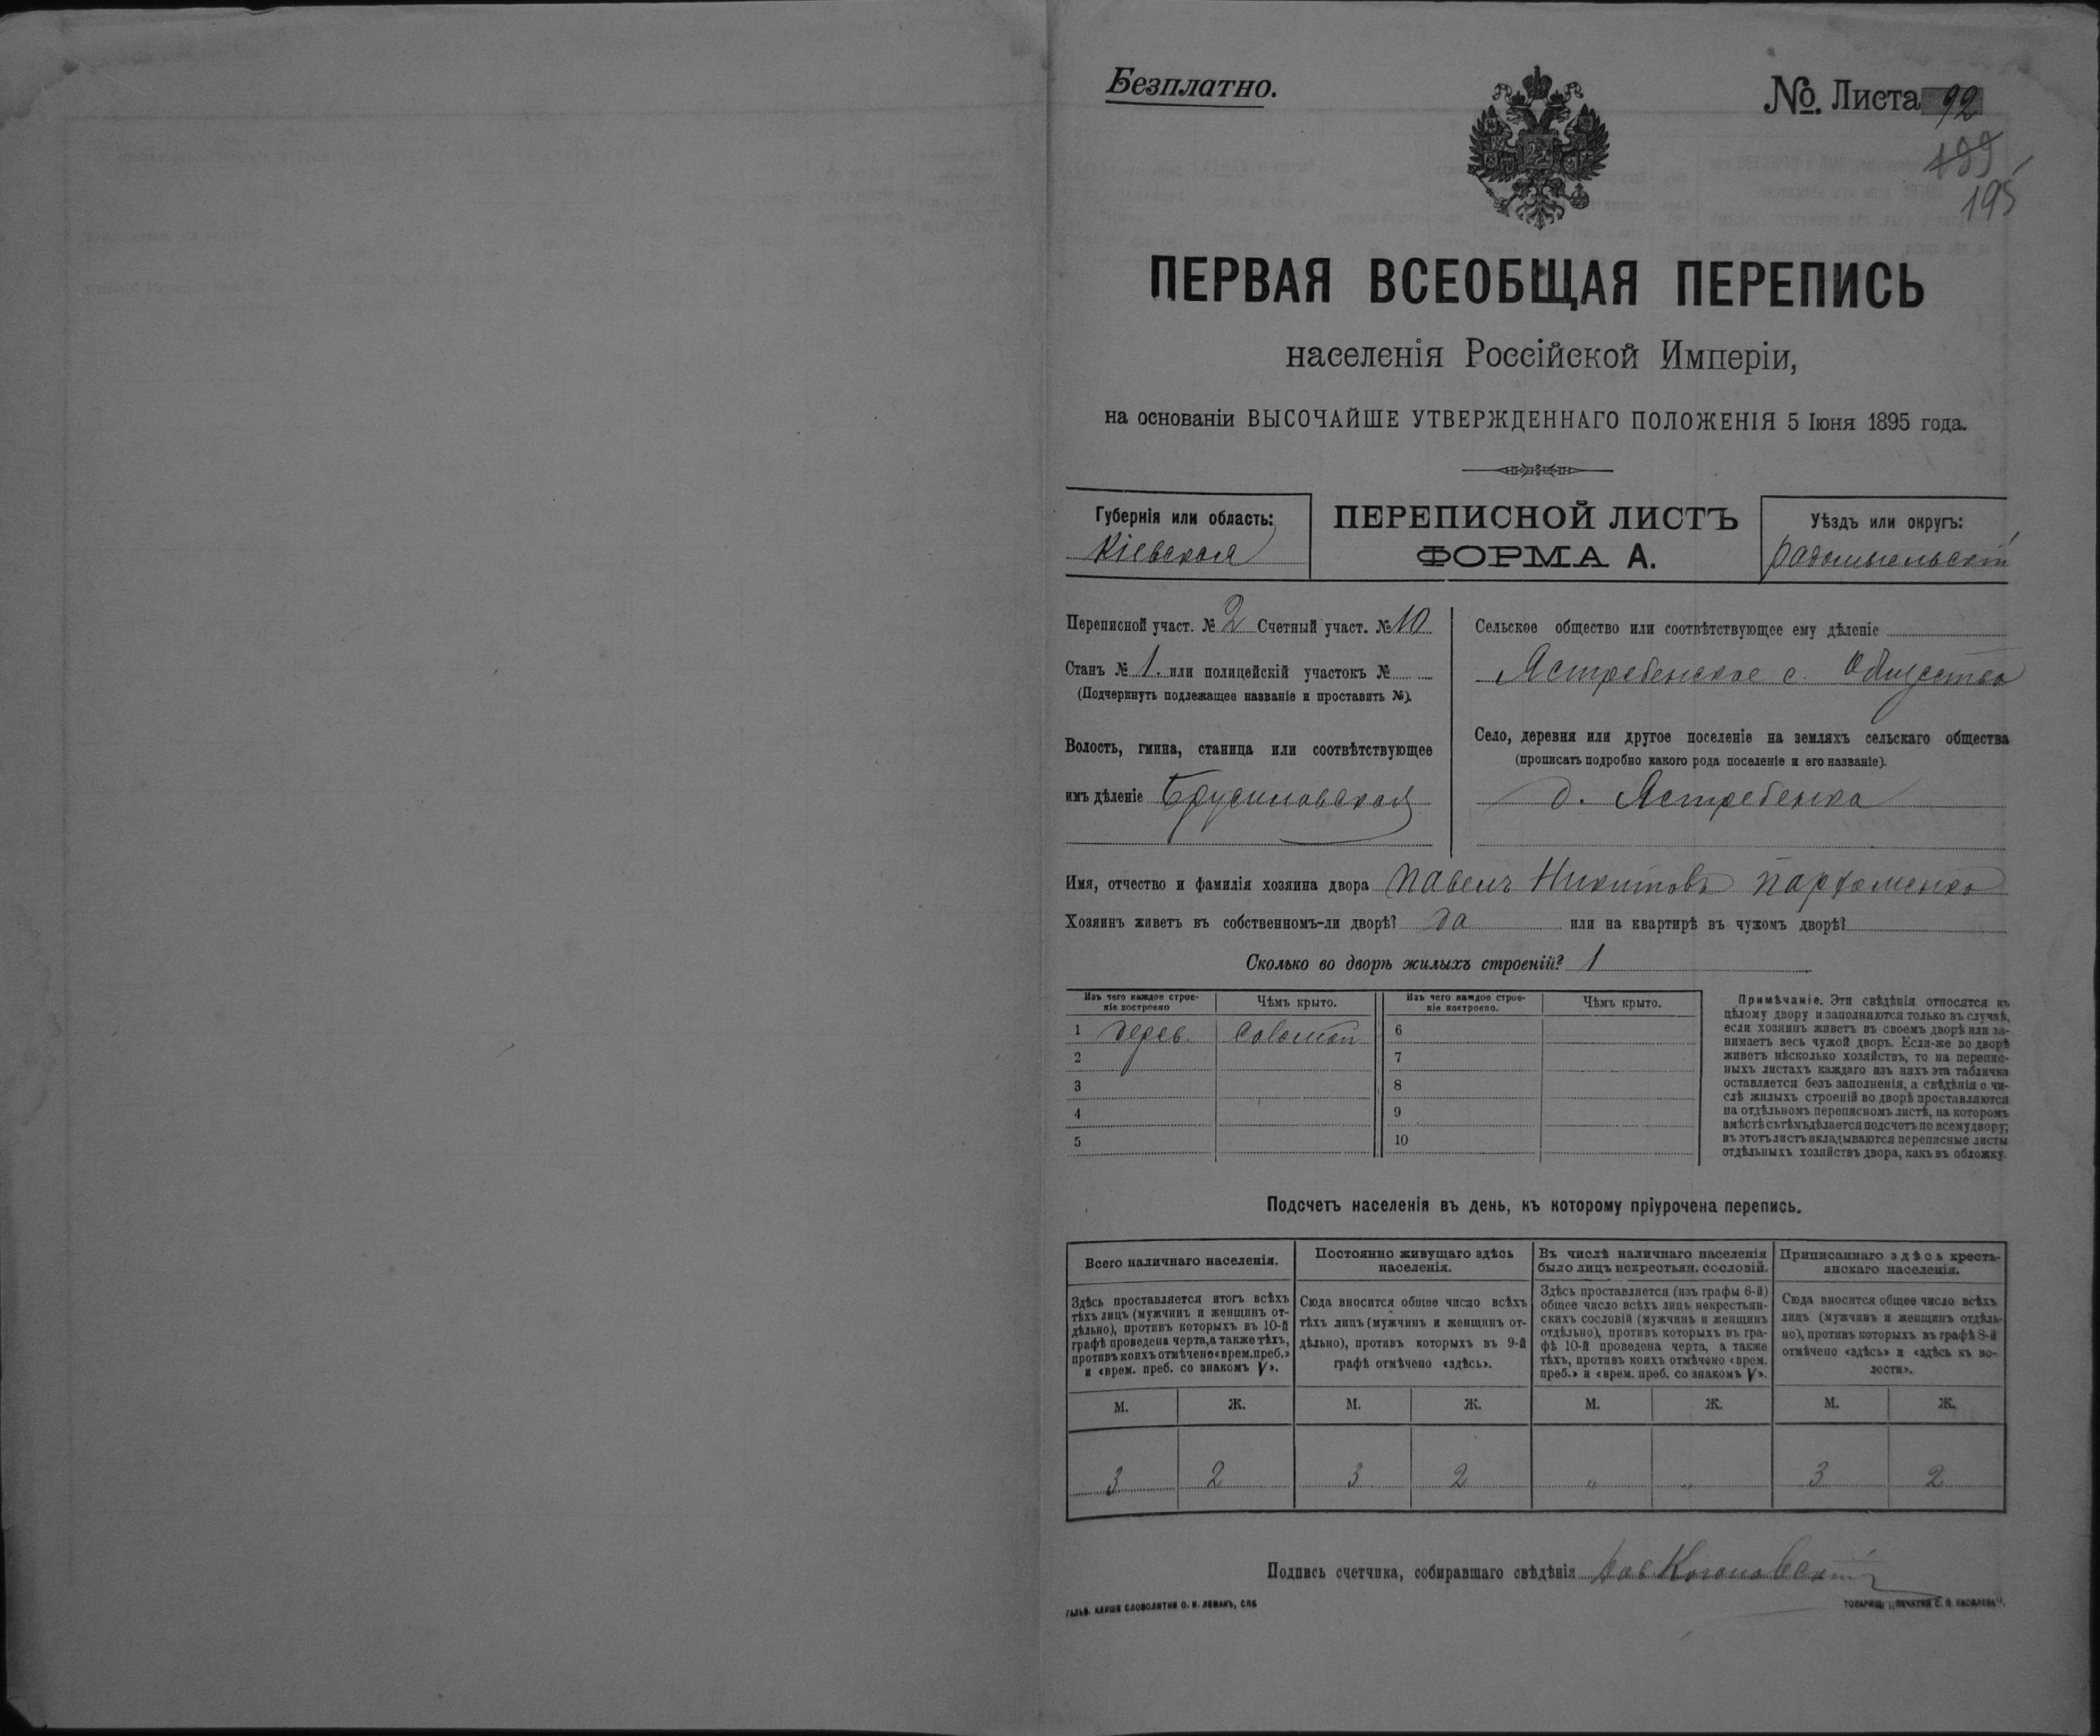 Безплатно.
№. Листа 92
199
195
ПЕРВАЯ ВСЕОБЩАЯ ПЕРЕПИСЬ
населенія Россійской Имперіи,
на основаніи ВЫСОЧАЙШЕ УТВЕРЖДЕННАГО ПОЛОЖЕНІЯ 5 Іюня 1895 года.
Губернія или область:
Кіевская
ПЕРЕПИСНОЙ ЛИСТЪ
ФОРМА А.
Уѣздъ или округъ:
Радомысльскій
Переписной участ. № 2 Счетный участ. № 10
Станъ № 1. или полицейскій участокъ №
(Подчеркнуть подлежащее названіе и проставить №).
Волость, гмина, станица или соотвѣтствующее
имъ дѣленіе Брусиловская
Сельское общество или соотвѣтствующее ему дѣленіе
Ястребенское с. Общество
Село, деревня или другое поселеніе на земляхъ сельскаго общества
(прописать подробно какого рода поселеніе и его названіе).
д. Ястребенка
Имя, отчество и фамилія хозяина двора Павелъ Никитовъ Пархоменко
Хозяинъ живетъ въ собственномъ-ли дворѣ? да или на квартирѣ въ чужомъ дворѣ?
Сколько во дворѣ жилыхъ строеній? 1
Изъ чего каждое строе-
ніе построено
Чѣмъ крыто.
Изъ чего каждое строе-
ніе построено.
Чѣмъ крыто.
1 дерев. соломой 6
2 7
3 8
4 9
5 10
Примѣчаніе. Эти свѣдѣнія относятся къ
цѣлому двору и заполняются только въ случаѣ,
если хозяинъ живетъ въ своемъ дворѣ или за-
нимаетъ весь чужой дворъ. Если-же во дворѣ
живетъ нѣсколько хозяйствъ, то на перепис-
ныхъ листахъ каждаго изъ нихъ эта табличка
оставляется безъ заполненія, а свѣдѣнія о чи-
слѣ жилыхъ строеній во дворѣ проставляются
на отдѣльномъ переписномъ листѣ, на которомъ
вмѣстѣ съ тѣмъ дѣлается подсчетъ по всему двору;
въ этотъ листъ вкладываются переписные листы
отдѣльныхъ хозяйствъ двора, какъ въ обложку.
Подсчетъ населенія въ день, къ которому пріурочена перепись.
Всего наличнаго населенія.
Здѣсь проставляется итогъ всѣхъ
тѣхъ лицъ (мужчинъ и женщинъ от-
дѣльно), противъ которыхъ въ 10-й
графѣ проведена черта, а также тѣхъ,
противъ коихъ отмѣчено «врем. преб.»
и «врем. преб. со знакомъ V».
Постоянно живущаго здѣсь
населенія.
Сюда вносится общее число всѣхъ
тѣхъ лицъ (мужчинъ и женщинъ от-
дѣльно), противъ которыхъ въ 9-й
графѣ отмѣчено «здѣсь».
Въ числѣ наличнаго населенія
было лицъ некрестьян. сословій.
Здѣсь проставляется (изъ графы 6-й)
общее число всѣхъ лицъ некрестьян-
скихъ сословій (мужчинъ и женщинъ
отдѣльно), противъ которыхъ въ гра-
фѣ 10-й проведена черта, а также
тѣхъ, противъ коихъ отмѣчено «врем.
преб.» и «врем. преб. со знакомъ V».
Приписаннаго здѣсь кресть-
янскаго населенія.
Сюда вносится общее число всѣхъ
лицъ (мужчинъ и женщинъ отдѣль-
но), противъ которыхъ въ графѣ 8-й
отмѣчено «здѣсь» и «здѣсь къ во-
лости».
М. Ж. М. Ж. М. Ж. М. Ж.
3 2 3 2 „ „ 3 2
Подпись счетчика, собиравшаго свѣдѣнія
ГАЛЬВ. КЛИШЕ СЛОВОЛИТНИ О. И. ЛЕМАНЪ, СПБ
ТОВАРИЩ. „ПЕЧАТНЯ С. П. ЯКОВЛЕВА".